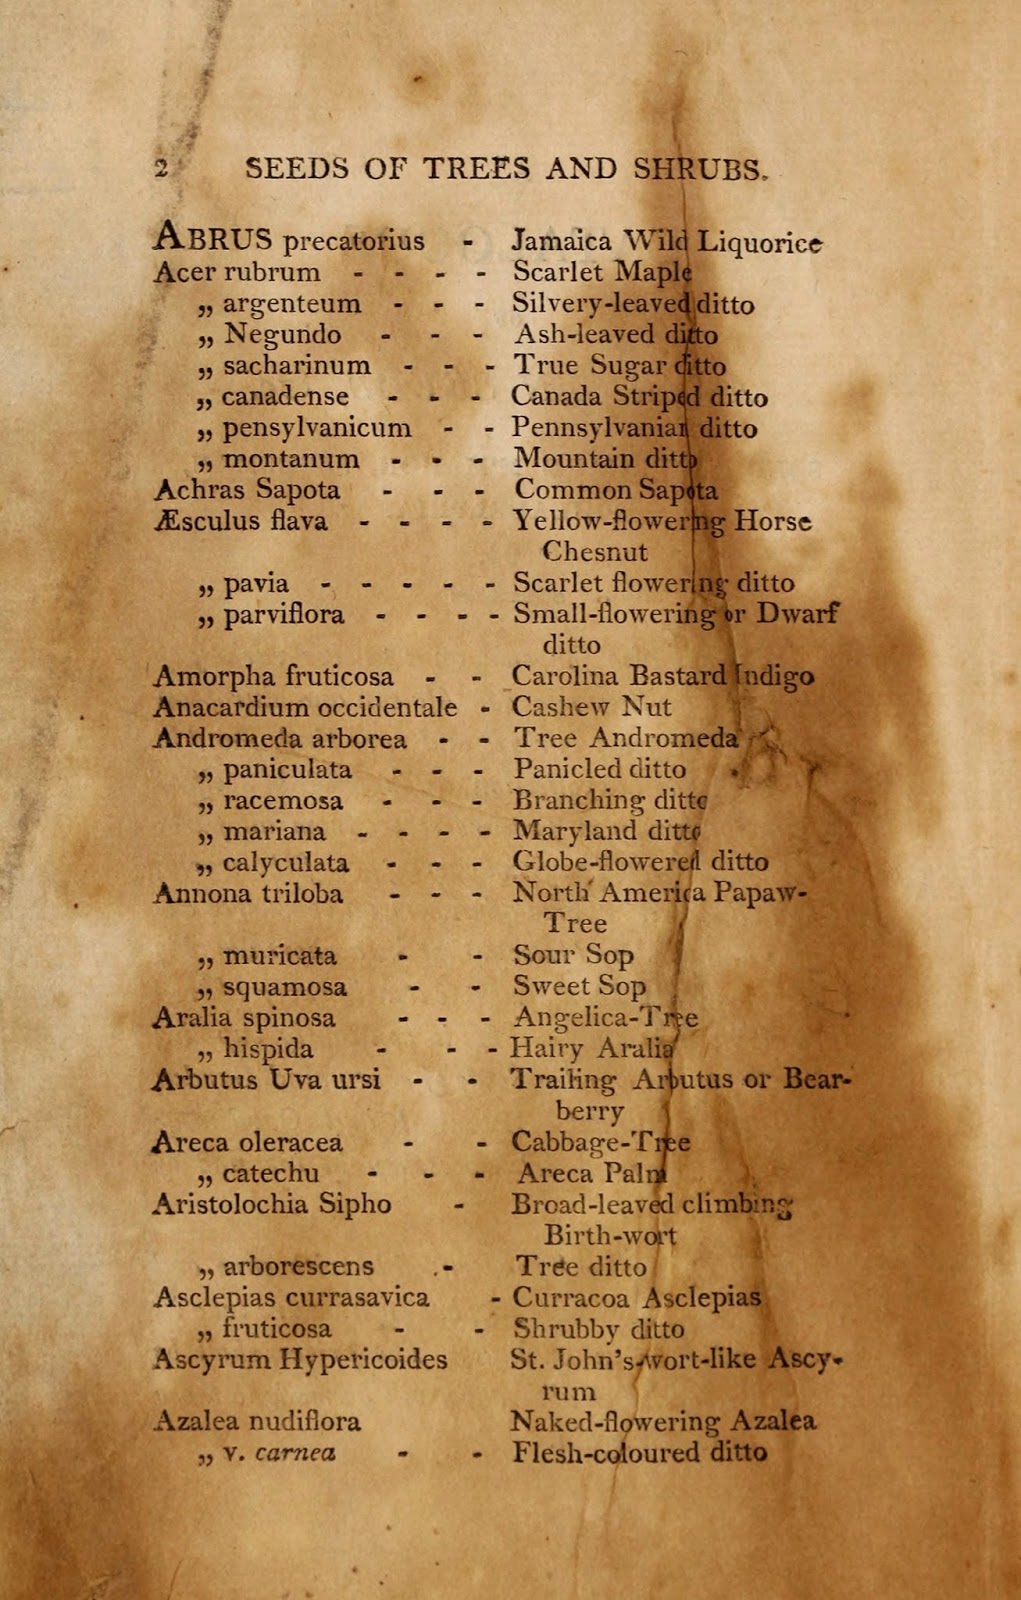 2 SEEDS OF TREES AND SHRUBS.
ABRUS precatorius - Jamaica Wild Liquorice
Acer rubrum - - - - Scarlet Maple
„ argenteum - - - Silvery-leaved ditto
„ Negundo - - - Ash-leaved ditto
„ sacharinum - - - True Sugar ditto
„ canadense - - - Canada Striped ditto
„ pensylvanicum - - Pennsylvanian ditto
„ montanum - - - Mountain ditto
Achras Sapota - - - Common Sapota
Æsculus flava - - - - Yellow-flowering Horse
Chesnut
„ pavia - - - - - Scarlet flowering ditto
„ parviflora - - - - Small-flowering or Dwarf
ditto
Amorpha fruticosa - - Carolina Bastard Indigo
Anacardium occidentale - Cashew Nut
Andromeda arborea - - Tree Andromeda
„ paniculata - - - Panicled ditto
„ racemosa - - - Branching ditto
„ mariana - - - - Maryland ditto
„ calyculata - - - Globe-flowered ditto
Annona triloba - - - North America Papaw-
Tree
„ muricata - - Sour Sop
„ squamosa - - Sweet Sop
Aralia spinosa - - - Angelica-Tree
„ hispida - - - Hairy Aralia
Arbutus Uva ursi - - Trailing Arbutus or Bear-
berry
Areca oleracea - - Cabbage-Tree
„ catechu - - - Areca Palm
Aristolochia Sipho - Broad-leaved climbing
Birth-wort
„ arborescens - Tree ditto
Asclepias currasavica - Curracoa Asclepias
„ fruticosa - - Shrubby ditto
Ascyrum Hypericoides St. John's-wort-like Ascy-
rum
Azalea nudiflora Naked-flowering Azalea
„ v. carnea - - Flesh-coloured ditto